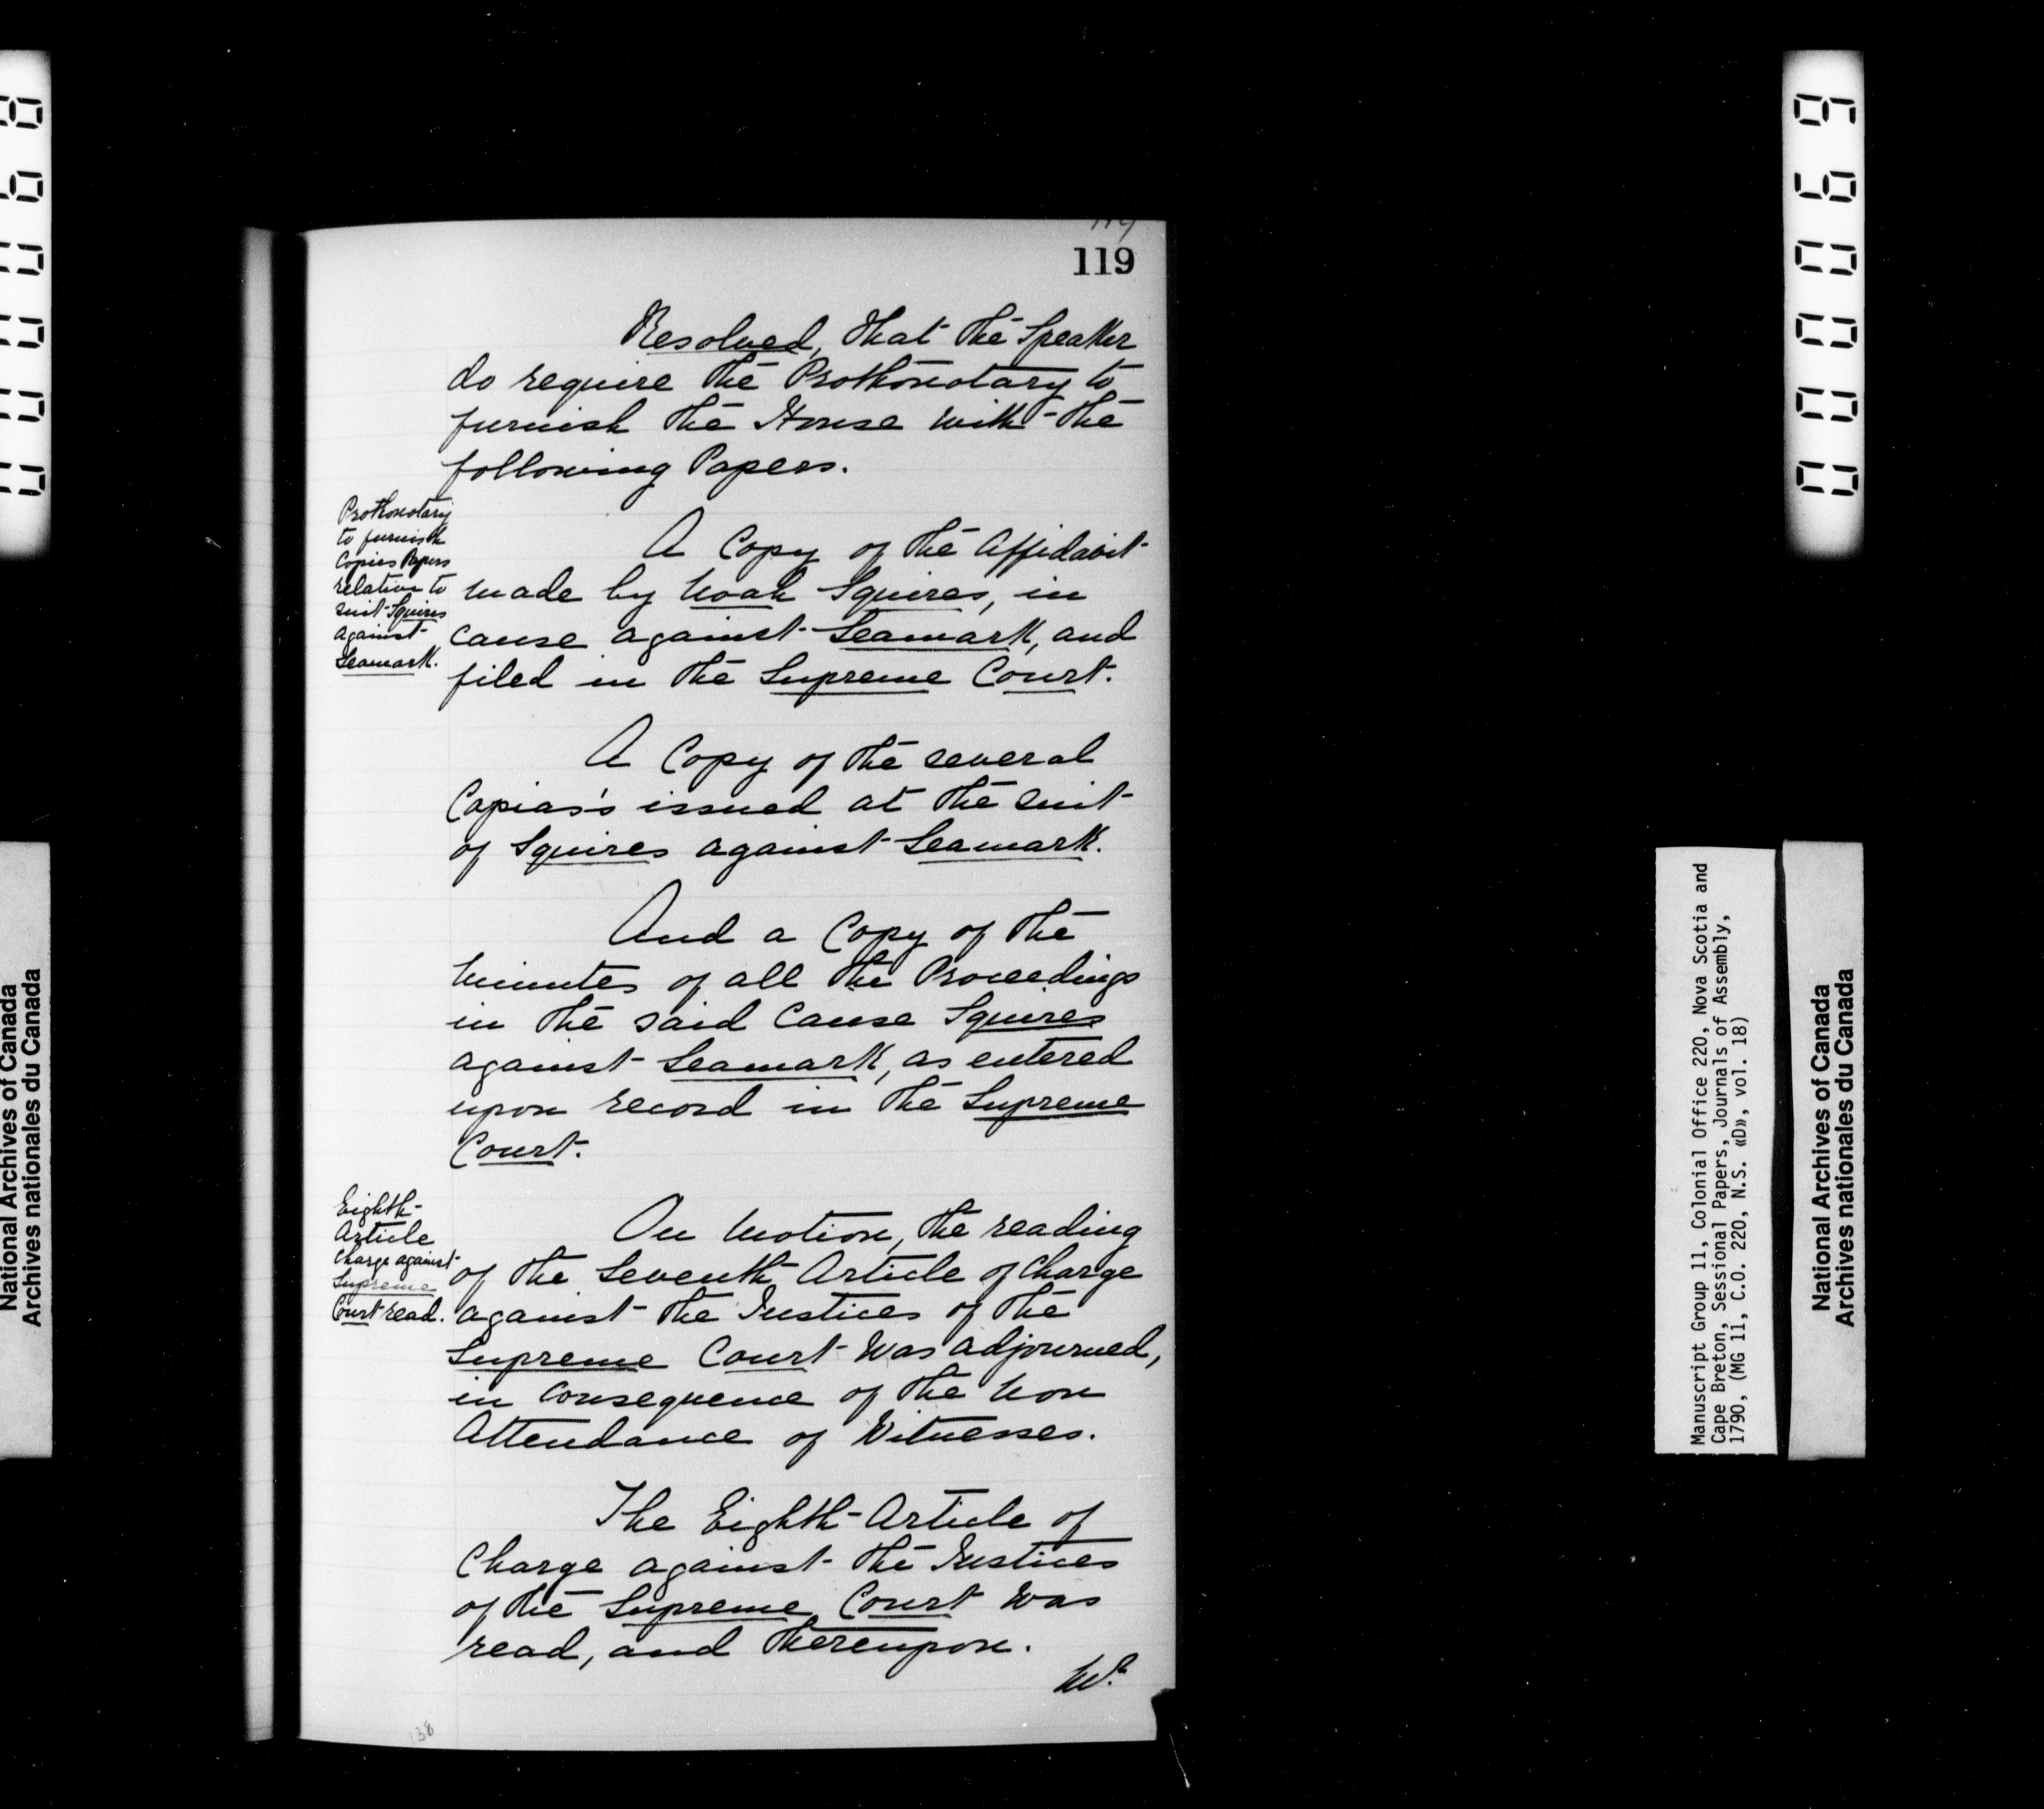 119
119
Resolved, that the Speaker
do require the Prothonotary to
furnish the House with the
following Papers.
Prothonotary
to furnish
Copies Papers
relative to
suit Squires
against
Seamark.
A Copy of the Affidavit
made by Noah Squires, in
cause against Seamark, and
filed in the Supreme Court.
A Copy of the several
Capias's issued at the suit
of Squires against Seamark.
And a Copy of the
Minutes of all the Proceedings
in the said Cause Squires
against Seamark, as entered
upon record in the Supreme
Court.
Eighth
Article
Charge against
Supreme
Court read.
On Motion, the reading
of the Seventh Article of Charge
against the Justices of the
Supreme Court was adjourned,
in consequence of the Non
Attendance of Witnesses.
The Eighth Article of
Charge against the Justices
of the Supreme Court was
read, and thereupon.
Mr.
138
000068
National Archives of Canada
Archives nationales du Canada
000069
Manuscript Group 11, Colonial Office 220, Nova Scotia and
Cape Breton, Sessional Papers, Journals of Assembly,
1790, (MG 11, C.O. 220, N.S. «D», vol. 18)
National Archives of Canada
Archives nationales du Canada